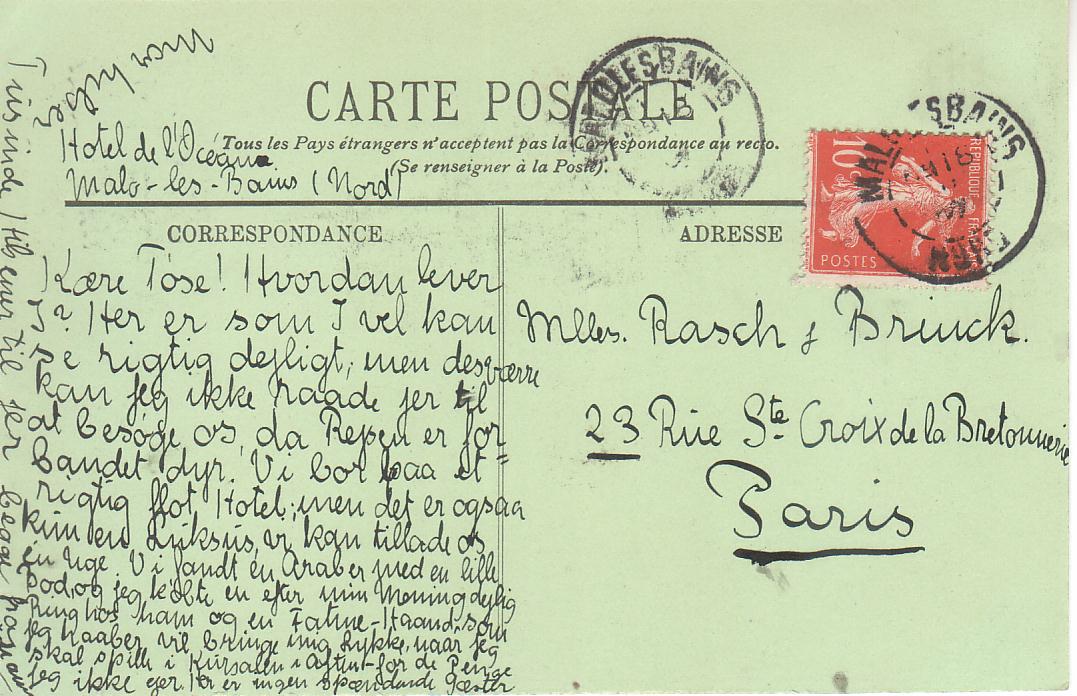 CARTE POSTALE
Tous les Pays étrangers n'acceptent pas la Correspondance au recto.
(Se renseigner à la Poste).
Hotel de l'Océan
Malo-les-Bains (Nord)
CORRESPONDANCE
Kære Tose! Hvordan lever
I? Her er som I vel kan
se rigtig dejligt, men desværre
kan jeg ikke raade jer til
at besøge os, da Rejsen er for-
bandet dyr. Vi bor paa et
rigtig flot Hotel; men det er ogsaa
kun en Luksus, vi kan tillade os
en Uge. Vi fandt en Araber med en lille
Bod, og jeg købte en efter min Mening dejlig
Ring hos ham og en Fatme-Haand, som
jeg haaber vil bringe mig Lykke, naar jeg
skal spille i Kursalen i Aften for de Penge
jeg ikke ejer. Her er ingen spændende Gæster
Tusinde Hilsener til jer begge fra
Mor hilser
ADRESSE
Mlles. Rasch & Brinck.
23 Rue Ste Croix de la Bretonnerie
Paris
MALO LES BAINS
MALO LES BAINS
10
REPUBLIQUE
POSTES